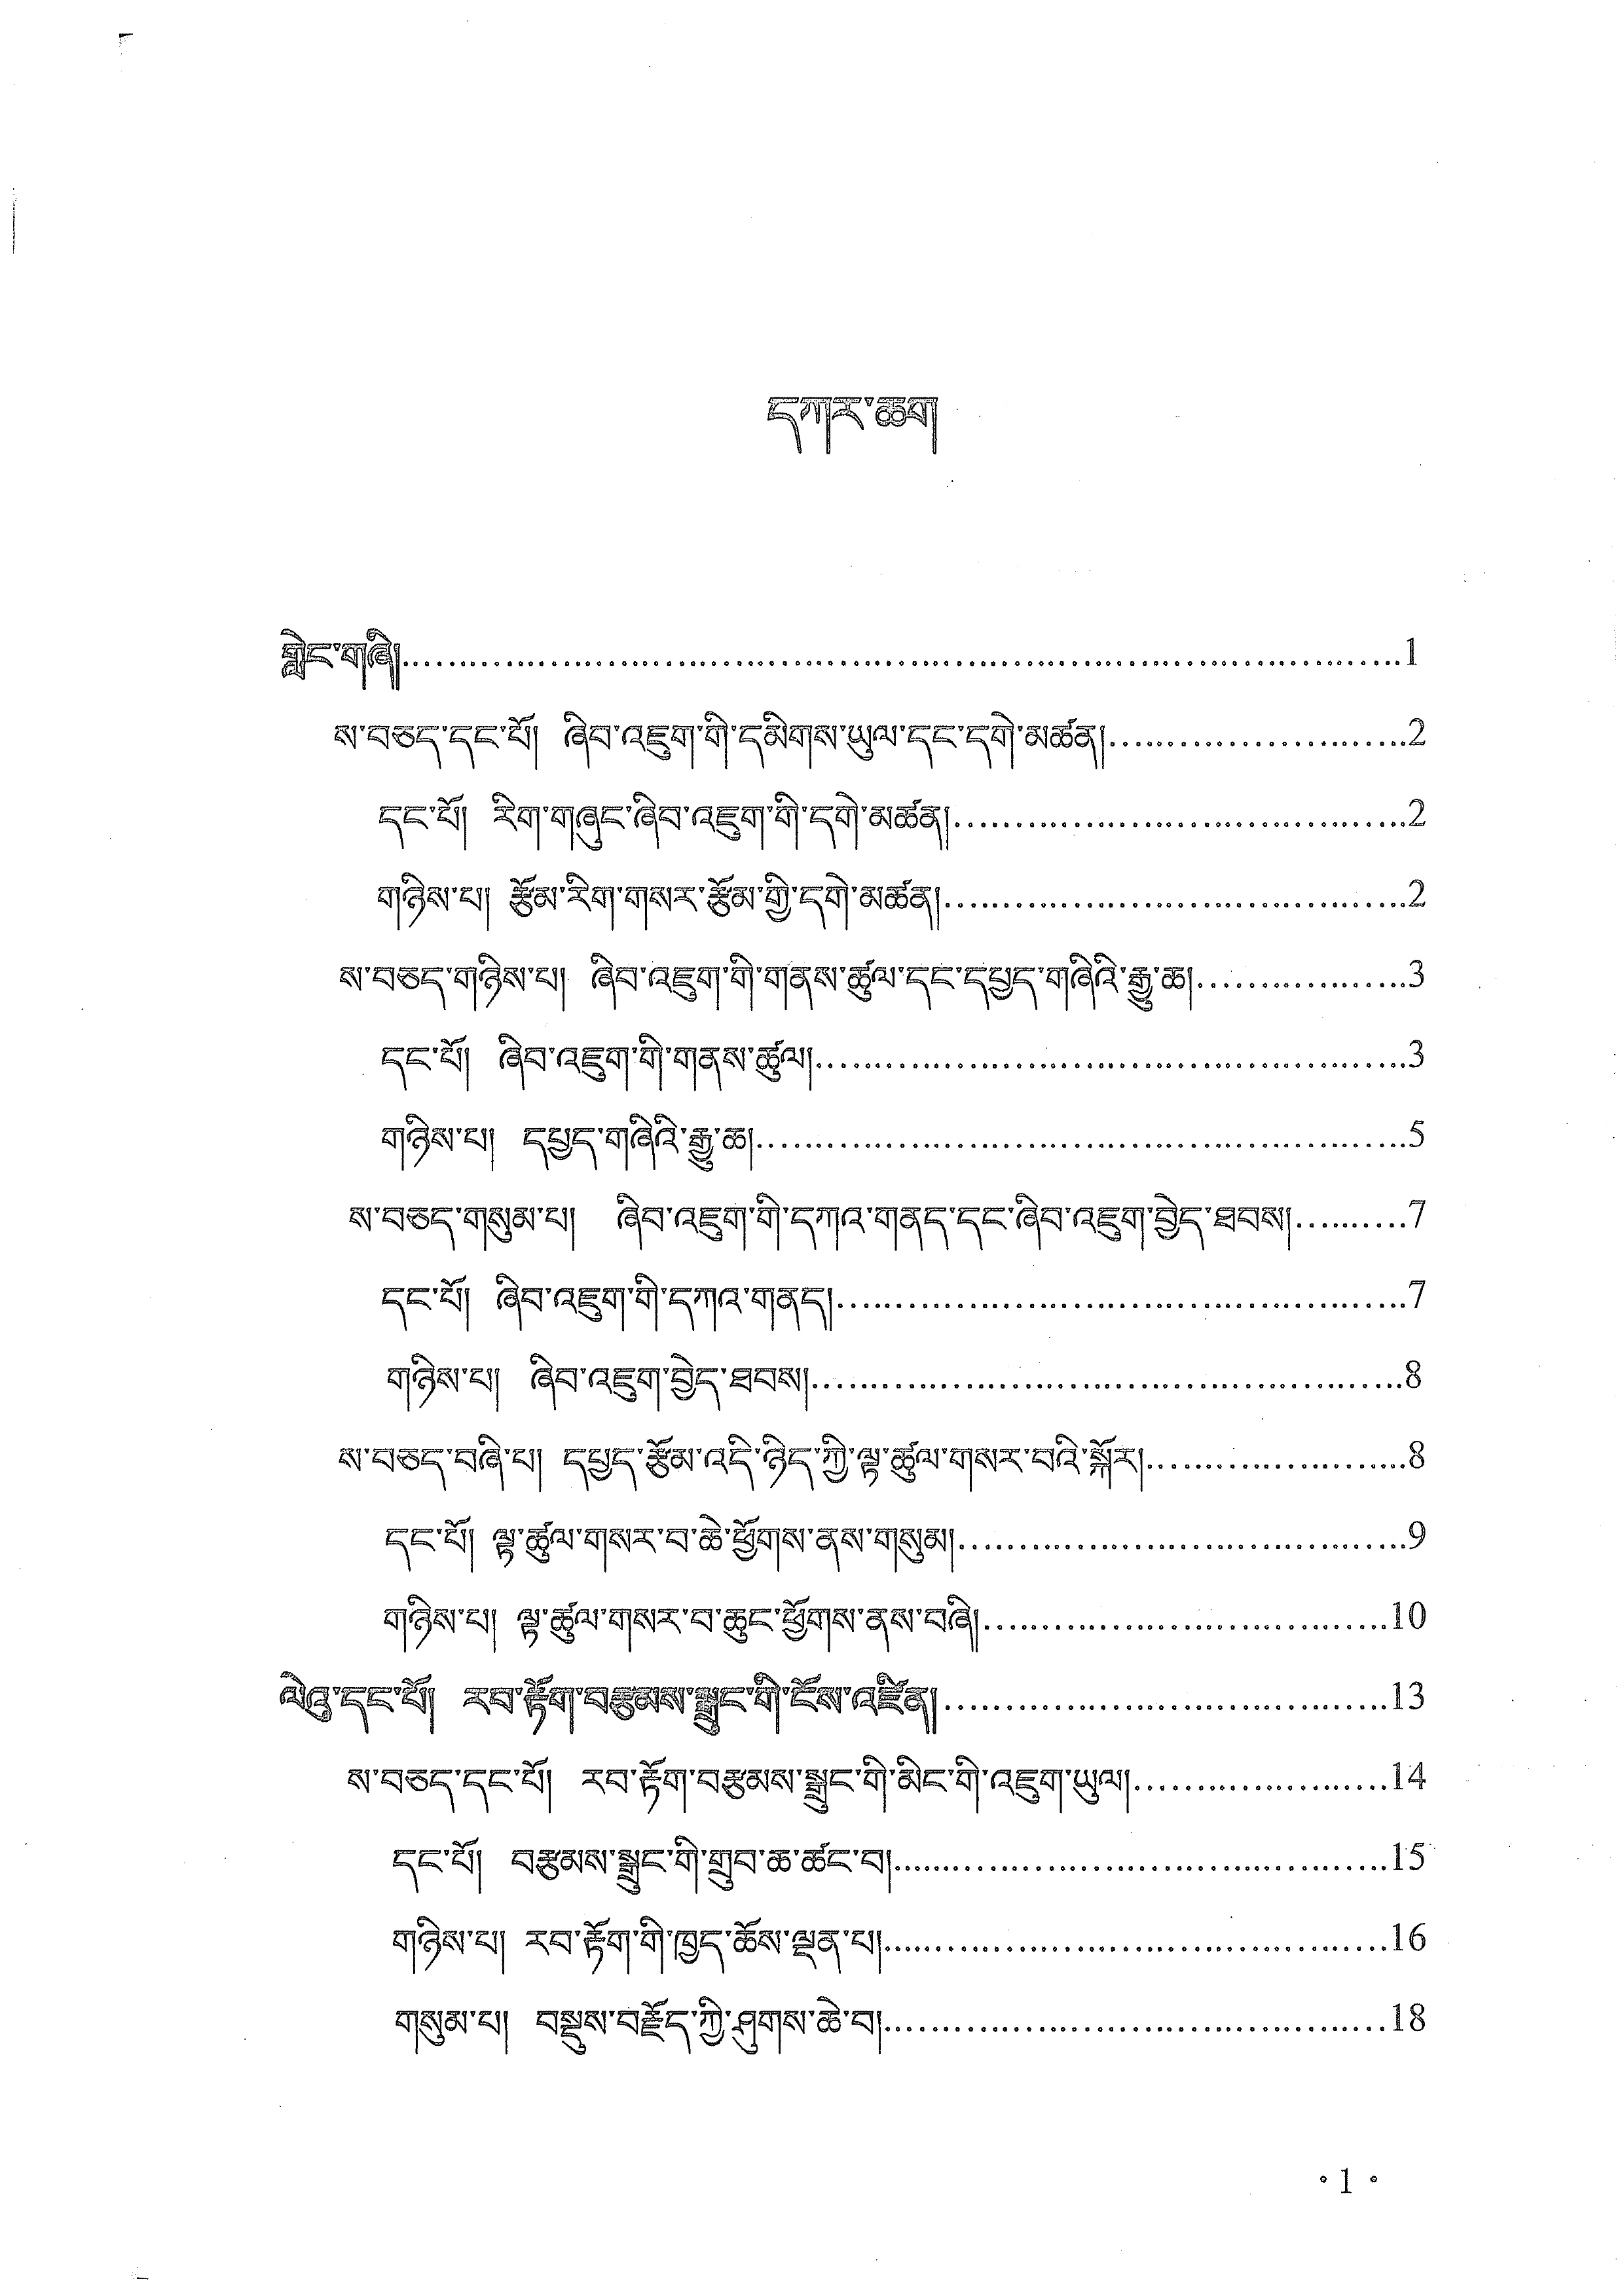 དཀར་ཆག
གླེང་གཞི།........................................1
ས་བཅད་དང་པོ། ཞིབ་འཇུག་གི་དམིགས་ཡུལ་དང་དགེ་མཚན།........................................2
དང་པོ། རིག་གཞུང་ཞིབ་འཇུག་གི་དགེ་མཚན།........................................2
གཉིས་པ། རྩོམ་རིག་གསར་རྩོམ་གྱི་དགེ་མཚན།........................................2
ས་བཅད་གཉིས་པ། ཞིབ་འཇུག་གི་གནས་ཚུལ་དང་དཔྱད་གཞིའི་རྒྱུ་ཆ།........................................3
དང་པོ། ཞིབ་འཇུག་གི་གནས་ཚུལ།........................................3
གཉིས་པ། དཔྱད་གཞིའི་རྒྱུ་ཆ།........................................5
ས་བཅད་གསུམ་པ། ཞིབ་འཇུག་གི་དཀའ་གནད་དང་ཞིབ་འཇུག་བྱེད་ཐབས།..........7
དང་པོ། ཞིབ་འཇུག་གི་དཀའ་གནད།........................................7
གཉིས་པ། ཞིབ་འཇུག་བྱེད་ཐབས།........................................8
ས་བཅད་བཞི་པ། དཔྱད་རྩོམ་འདི་ཉིད་ཀྱི་ལྟ་ཚུལ་གསར་བའི་སྐོར།........................................8
དང་པོ། ལྟ་ཚུལ་གསར་བ་ཆེ་ཕྱོགས་ནས་གསུམ།........................................9
གཉིས་པ། ལྟ་ཚུལ་གསར་བ་ཆུང་ཕྱོགས་ནས་བཞི།........................................10
ལེའུ་དང་པོ། རབ་རྟོག་བརྩམས་སྒྲུང་གི་ངོས་འཛིན།........................................13
ས་བཅད་དང་པོ། རབ་རྟོག་བརྩམས་སྒྲུང་གི་མིང་གི་འཇུག་ཡུལ།........................................14
དང་པོ། བརྩམས་སྒྲུང་གི་གྲུབ་ཆ་ཚང་བ།........................................15
གཉིས་པ། རབ་རྟོག་གི་ཁྱད་ཆོས་ལྡན་པ།........................................16
གསུམ་པ། བསྡུས་བརྗོད་ཀྱི་ཤུགས་ཆེ་བ།........................................18
• 1 •